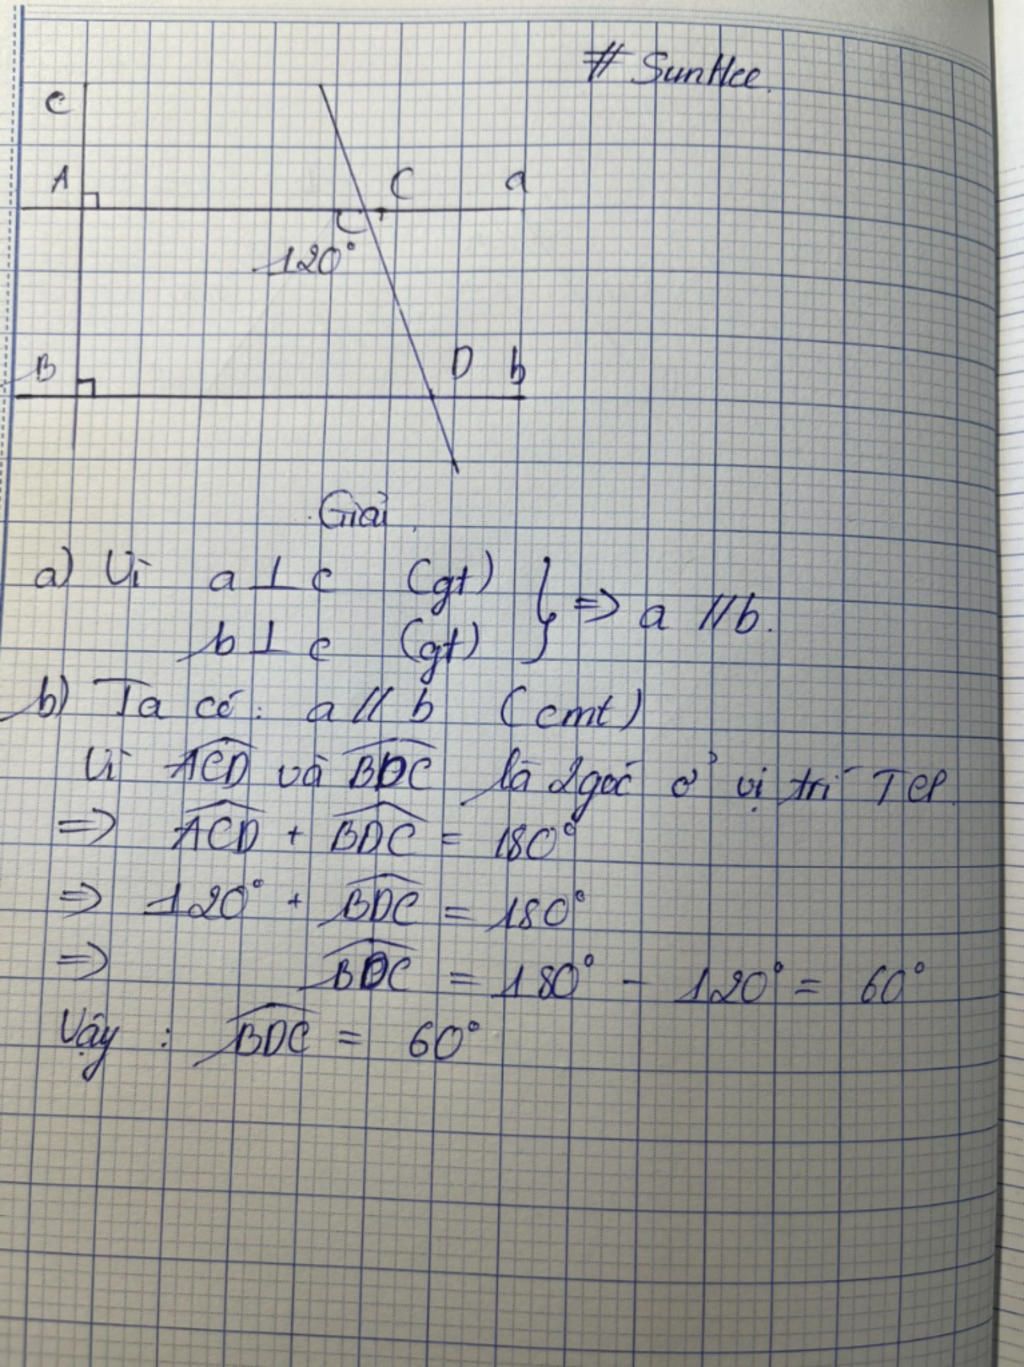 # SunHee.
c
A
C
a
120°
B
D
b
Giải
a) Vì a ⊥ c (gt)
b ⊥ c (gt)
} => a // b.
b) Ta có: a // b (cmt)
Vì \widehat{ACD} và \widehat{BDC} là 2 góc ở vị trí TCP
=> \widehat{ACD} + \widehat{BDC} = 180°
=> 120° + \widehat{BDC} = 180°
=> \widehat{BDC} = 180° - 120° = 60°
Vậy : \widehat{BDC} = 60°